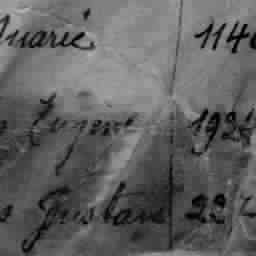 Marie 1140
Eugene 192
s Gustave 22